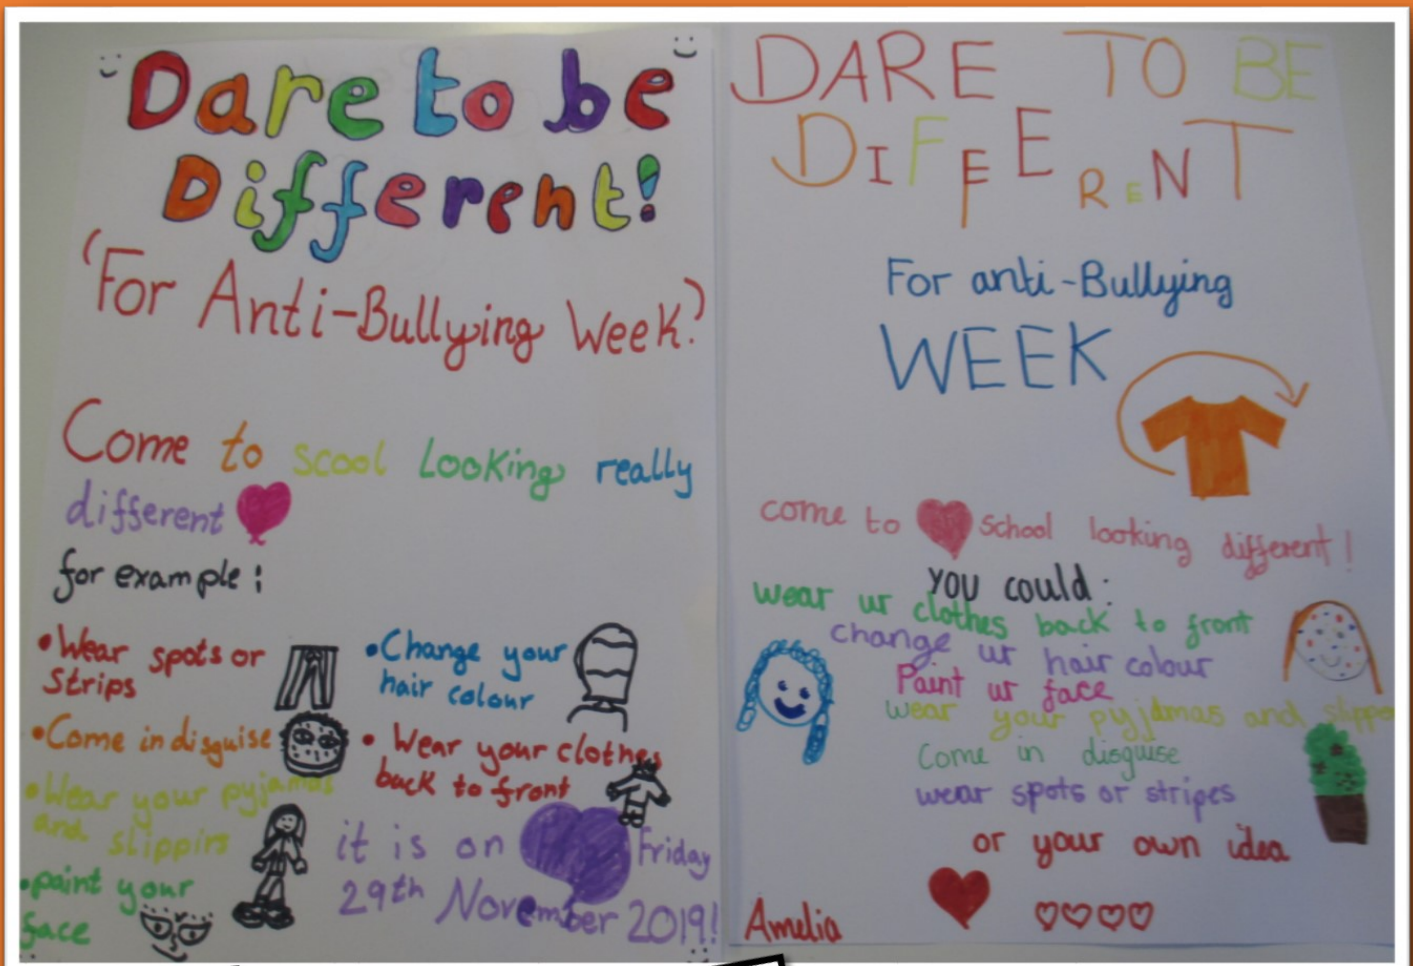 Dare to be
Different!
'For Anti-Bullying Week?
Come to scool looking really
different
for example:
•Wear spots or
Strips
•Come in disguise
•Wear your pyjamas
and slippin
•paint your
face
•Change your
hair colour
• Wear your clothes
back to front
it is on Friday
29th November 2019!
DARE TO BE
DIFFERENT
For anti-Bullying
WEEK
come to school looking different!
you could:
wear ur clothes back to front
change ur hair colour
Paint ur face
wear your pyjamas and slippe
Come in disguise
wear spots or stripes
or your own idea
Amelia